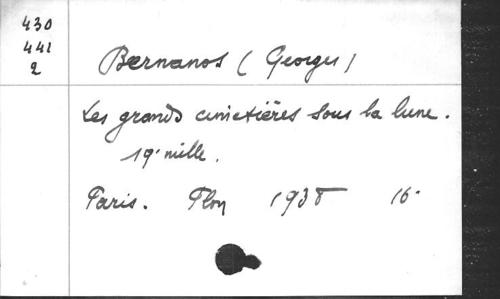 430
441
2
Bernanos (Georges)
Les grands cimetières sous la lune.
19e mille.
Paris. Plon 1938 16°